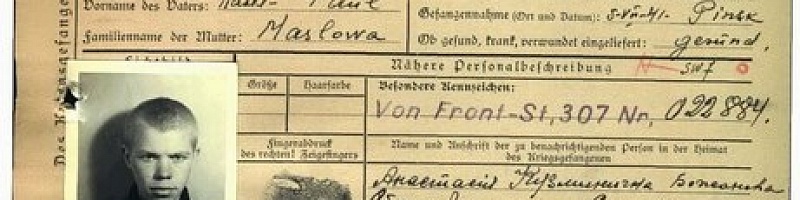 Vorname des Vaters: Paul
Familienname der Mutter: Maslowa
Gefangennahme (Ort und Datum): 5-VII-41- Pinsk
Ob gesund, krank, verwundet eingeliefert: gesund.
Des Kriegsgefangenen
Lichtbild
Nähere Personalbeschreibung
Größe
Haarfarbe
Besondere Kennzeichen:
Von Front-St, 307 Nr. 022884.
Fingerabdruck
des rechten! Zeigefingers
Name und Anschrift der zu benachrichtigenden Person in der Heimat
des Kriegsgefangenen
Анастасия